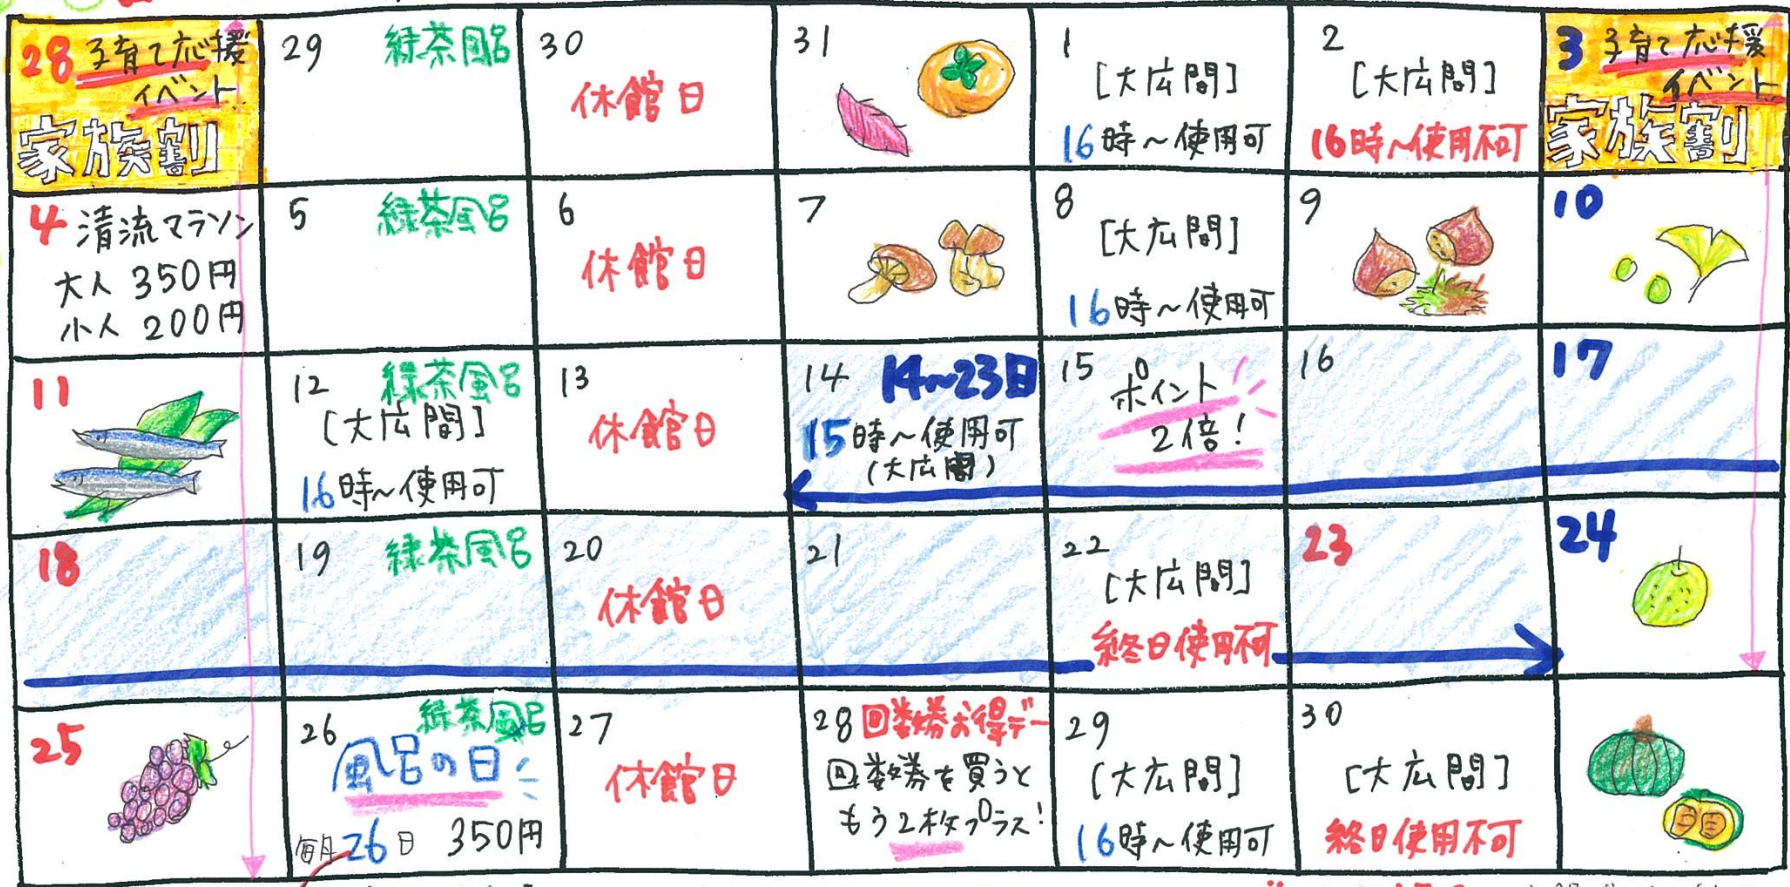 28 子育て応援
イベント
家族割
29 緑茶風呂
30
休館日
31
1
[大広間]
16時～使用可
2
[大広間]
16時～使用不可
3 子育て応援
イベント
家族割
4 清流マラソン
大人 350円
小人 200円
5 緑茶風呂
6
休館日
7
8
[大広間]
16時～使用可
9
10
11
12 緑茶風呂
[大広間]
16時～使用可
13
休館日
14 14～23日
15時～使用可
(大広間)
15 ポイント
2倍!
16
17
18
19 緑茶風呂
20
休館日
21
22
[大広間]
終日使用不可
23
24
25
26 緑茶風呂
風呂の日
毎月26日 350円
27
休館日
28 回数券お得デー
回数券を買うと
もう2枚プラス!
29
[大広間]
16時～使用可
30
[大広間]
終日使用不可